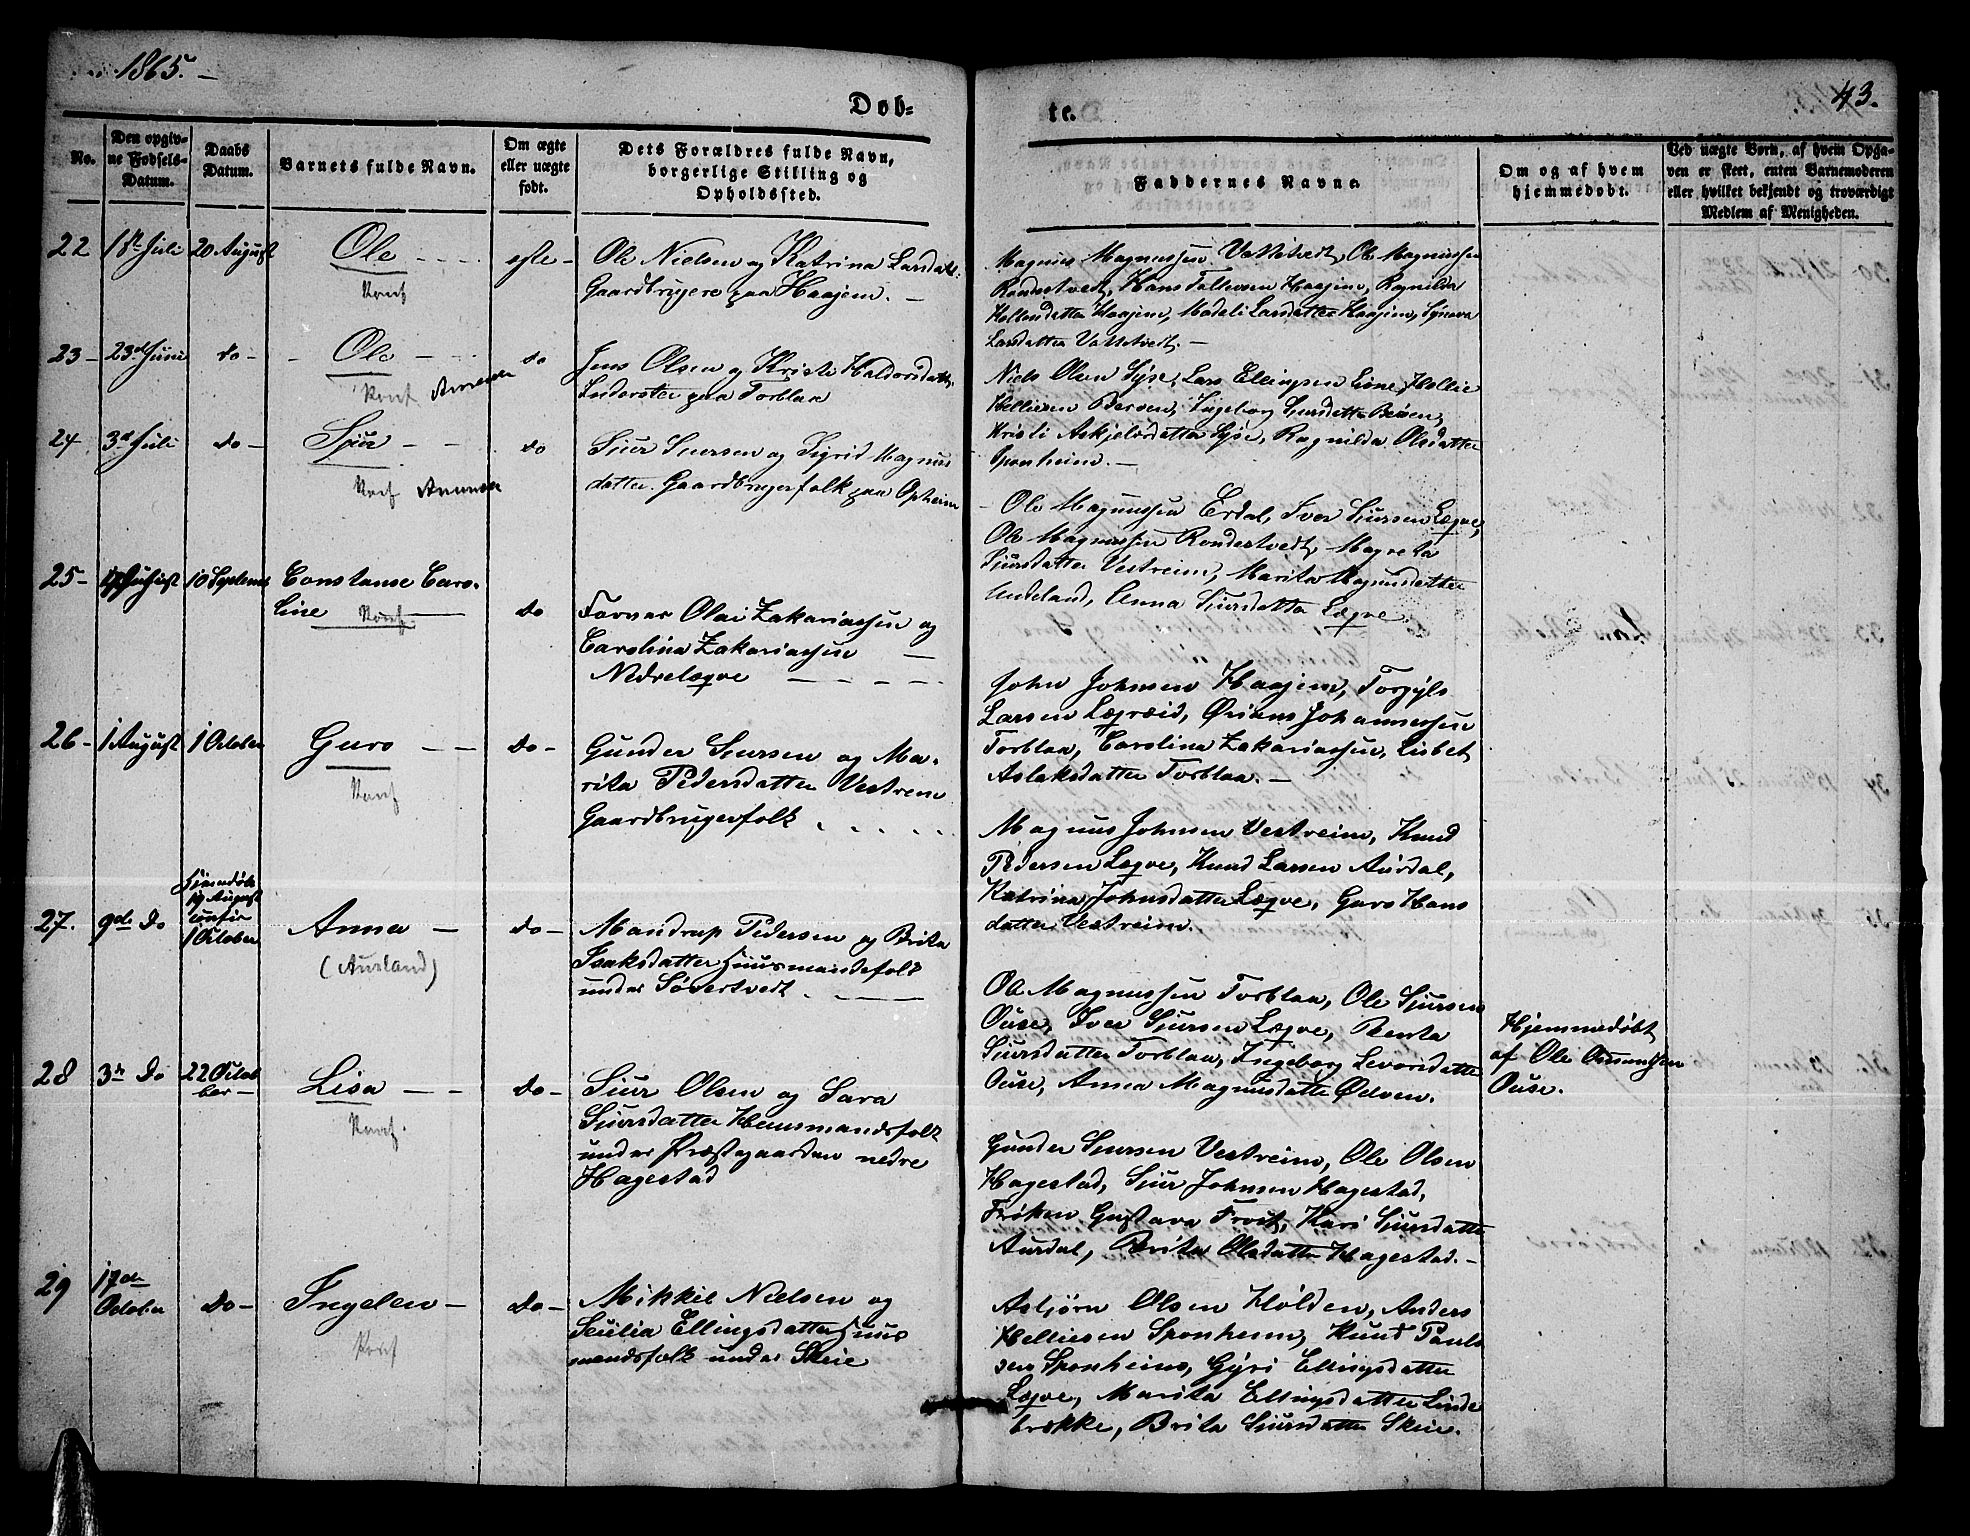 1865.
Døb-
te.
43.
No.
Den opgiv-
ne Fødsels-
Datum.
Daabs
Datum.
Barnets fulde Navn.
Om ægte
eller uægte
født.
Dets Forældres fulde Navn,
borgerlige Stilling og
Opholdssted.
Faddernes Navne.
Om og af hvem
hjemmedøbt.
Ved uægte Børn, af hvem Opga-
ven er skeet, enten Barnemoderen
eller hvilket bekjendt og troværdigt
Medlem af Menigheden.
22 Juli 20 August Ole
Konf
Ole Nielsen og Katrina Larsdatt.
Gaardbrugere paa Haajem. -
Magnus Magnussen Vattetvedt, Ole Magnussen
Rondestvedt, Hans Haajem, Ragnilda
Haajem, Larsdatter Haajem, Syneva
Larsdatter Vattetvedt. -
23 - 23 Juni do - Ole - do
Konf
Jens Olsen og Kristi Haldorsdatt.
Inderster paa Torblaa
Niels Olsen Syse, Lars Ellingsen Lione, Hellie
Helliesen Bersen, Ingeborg Sjursdatter
Kristi Askjelsdatter Syse, Ragnilda Olsdatter
Sponheim. -
24 3 Juli do - Sjur - do
Konf
Siur Siursen og Sigrid Magnus
datter. Gaardbrugerfolk paa Opheim
Ole Magnussen Erdal, Iver Sjursen Lægve,
Ole Magnussen Rondestvedt, Magreta
Sjursdatter Vestreim, Marita Magnusdatter
Undeland, Anna Sjursdatter Lægve.
25 - August 10 Septemb Constanse Caro-
line do
Konf
Forvar Olai Zakariassen og
Carolina Zakariassen
Nedrelægve
John Johnsen Haajem, Torgyls
Larsen Lægreid, Johannessen
Torblaa, Carolina Zakariassen, Lisbet
Aslaksdatter Torblaa. -
26 - 1 August 1 October Guro - - do -
Konf
Gunder Siursen og Ma-
rita Pedersdatter Vestreim
Gaardbrugerfolk
Magnus Johnsen Vestreim, Knud
Pedersen Lægve, Knud Larsen Aurdal,
Katrina Johnsdatter Lægve, Guro Hans
datter Vestreim.
Hjemdøb
19 August
1 October
27. 9de do Anna - do -
(Aurland)
Mandrup Pedersen og Brita
Isaksdatter Huusmandsfolk
under Sødertvedt
Ole Magnussen Torblaa, Ole Sjursen
Ouse, Iver Sjursen Lægve, Benta
Siursdatter Torblaa, Ingeborg Levorsdatter
Ouse, Anna Magnusdatter Ødven.
Hjemmedøbt
af Ole Osmundsen
Ouse.
28 3 do 22 Octo
ber - Lisa - - do -
Konf.
Siur Olsen og Sara
Sjursdatter Huusmandsfolk
under Præstegaarden nedre
Hagestad
Gunder Siursen Vestreim, Ole Olsen
Hagestad, Sjur Johnsen Hagestad,
Frøken Gustava Frost, Kari Sjursdatter
Aurdal, Brita Olsdatter Hagestad. -
29 17de
October do - Ingelen - do -
Konf
Mikkel Nielsen og
Seselia Ellingsdatter Huus
mandsfolk under Skeie
Asbjørn Olsen Holden, Anders
Helliesen Sponheim, Knud Pauls
sen Sponheim, Gyri Ellingsdatter
Lægve, Marita Ellingsdatter Linde
brekke, Brita Sjursdatter Skeie.